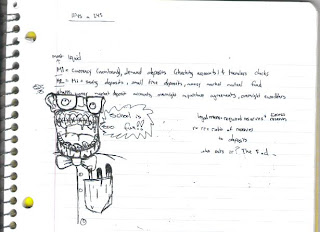 most liquid
M1= currency (cash/coin), demand deposits (checking accounts) & travelers checks
M2= M1 + saving deposits, small time deposits, money market mutual fund
money market deposit accounts, overnight repurchase agreements, overnight eurodollars
School is
soo fun!!
legal reserve-required reserves?
excess
reserves
rr ratio of reserves
to deposits
who sets it? The Fed.